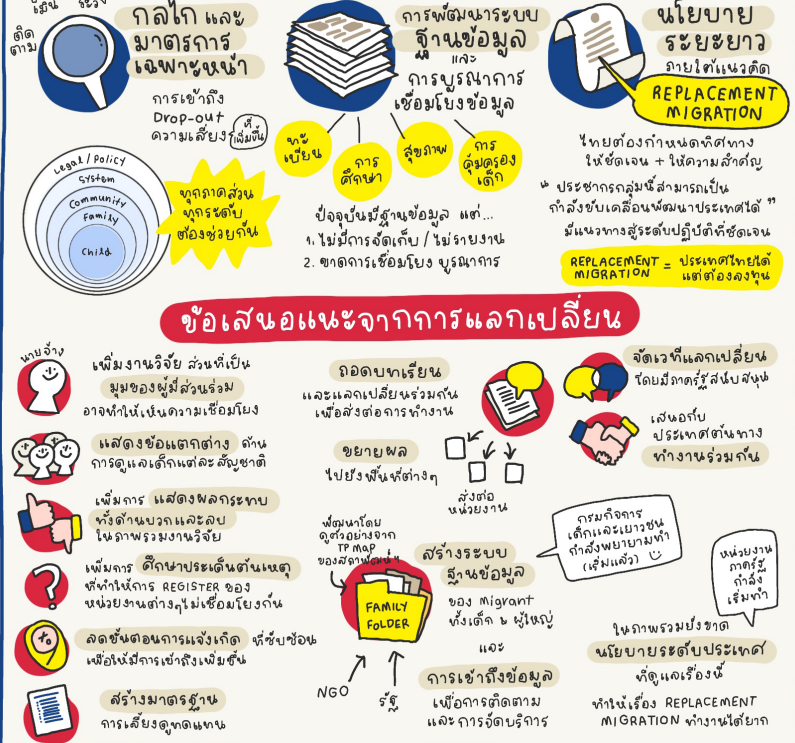 ติด
ตาม
กลไก และ
มาตรการ
เฉพาะหน้า
การเข้าถึง
Drop-out
ความเสี่ยง
ที่
เพิ่มขึ้น
Legal / Policy
System
Community
Family
Child
ทุกภาคส่วน
ทุกระดับ
ต้องช่วยกัน
การพัฒนาระบบ
ฐานข้อมูล
และ
การบูรณาการ
เชื่อมโยงข้อมูล
ทะ
เบียน
การ
ศึกษา
สุขภาพ
การ
คุ้มครอง
เด็ก
ปัจจุบันมีฐานข้อมูล แต่...
1. ไม่มีการจัดเก็บ / ไม่รายงาน
2. ขาดการเชื่อมโยง บูรณาการ
นโยบาย
ระยะยาว
ภายใต้แนวคิด
REPLACEMENT
MIGRATION
ไทยต้องกำหนดทิศทาง
ให้ชัดเจน + ให้ความสำคัญ
“ ประชากรกลุ่มนี้สามารถเป็น
กำลังขับเคลื่อนพัฒนาประเทศได้ ”
มีแนวทางสู่ระดับปฏิบัติที่ชัดเจน
REPLACEMENT
MIGRATION = ประเทศไทยได้
แต่ต้องลงทุน
ข้อเสนอแนะจากการแลกเปลี่ยน
นายจ้าง
เพิ่มงานวิจัย ส่วนที่เป็น
มุมของผู้มีส่วนร่วม
อาจทำให้เห็นความเชื่อมโยง
แสดงข้อแตกต่าง ด้าน
การดูแลเด็กแต่ละสัญชาติ
เพิ่มการ แสดงผลกระทบ
ทั้งด้านบวกและลบ
ในภาพรวมงานวิจัย
เพิ่มการ ศึกษาประเด็นต้นเหตุ
ที่ทำให้การ REGISTER ของ
หน่วยงานต่างๆไม่เชื่อมโยงกัน
ลดขั้นตอนการแจ้งเกิด ที่ซับซ้อน
เพื่อให้มีการเข้าถึงเพิ่มขึ้น
สร้างมาตรฐาน
การเลี้ยงดูทดแทน
ถอดบทเรียน
และแลกเปลี่ยนร่วมกัน
เพื่อส่งต่อการทำงาน
ขยายผล
ไปยังพื้นที่ต่างๆ
ส่งต่อ
หน่วยงาน
พัฒนาโดย
ดูตัวอย่างจาก
TPMAP
ของสภาพัฒน์ฯ
FAMILY
FOLDER
NGO
รัฐ
สร้างระบบ
ฐานข้อมูล
ของ Migrant
ทั้งเด็ก & ผู้ใหญ่
และ
การเข้าถึงข้อมูล
เพื่อการติดตาม
และการจัดบริการ
จัดเวทีแลกเปลี่ยน
โดยมีภาครัฐสนับสนุน
เสนอกับ
ประเทศต้นทาง
ทำงานร่วมกัน
กรมกิจการ
เด็กและเยาวชน
กำลังพยายามทำ
(เริ่มแล้ว)
หน่วยงาน
ภาครัฐ
กำลัง
เริ่มทำ
ในภาพรวมยังขาด
นโยบายระดับประเทศ
ที่ดูแลเรื่องนี้
ทำให้เรื่อง REPLACEMENT
MIGRATION ทำงานได้ยาก